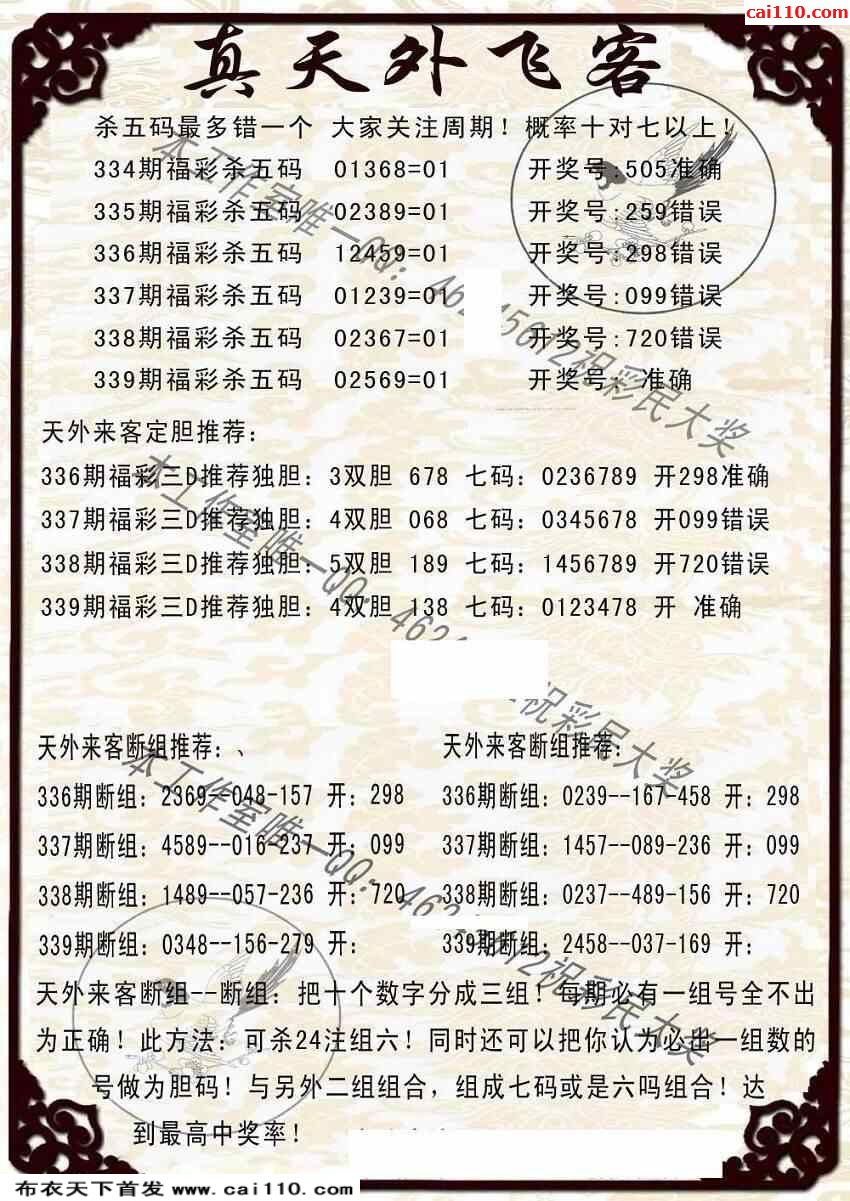 cai110.com
真天外飞客
杀五码最多错一个 大家关注周期！概率十对七以上！
334期福彩杀五码 01368=01 开奖号:505准确
335期福彩杀五码 02389=01 开奖号:259错误
336期福彩杀五码 12459=01 开奖号:298错误
337期福彩杀五码 01239=01 开奖号:099错误
338期福彩杀五码 02367=01 开奖号:720错误
339期福彩杀五码 02569=01 开奖号: 准确
天外来客定胆推荐：
336期福彩三D推荐独胆：3双胆 678 七码：0236789 开298准确
337期福彩三D推荐独胆：4双胆 068 七码：0345678 开099错误
338期福彩三D推荐独胆：5双胆 189 七码：1456789 开720错误
339期福彩三D推荐独胆：4双胆 138 七码：0123478 开 准确
天外来客断组推荐：、
336期断组：2369--048-157 开：298
337期断组：4589--016-237 开：099
338期断组：1489--057-236 开：720
339期断组：0348--156-279 开：
天外来客断组推荐：
336期断组：0239--167-458 开：298
337期断组：1457--089-236 开：099
338期断组：0237--489-156 开：720
339期断组：2458--037-169 开：
天外来客断组--断组：把十个数字分成三组！每期必有一组号全不出
为正确！此方法：可杀24注组六！同时还可以把你认为必出一组数的
号做为胆码！与另外二组组合，组成七码或是六吗组合！达
到最高中奖率！
布衣天下首发 www.cai110.com